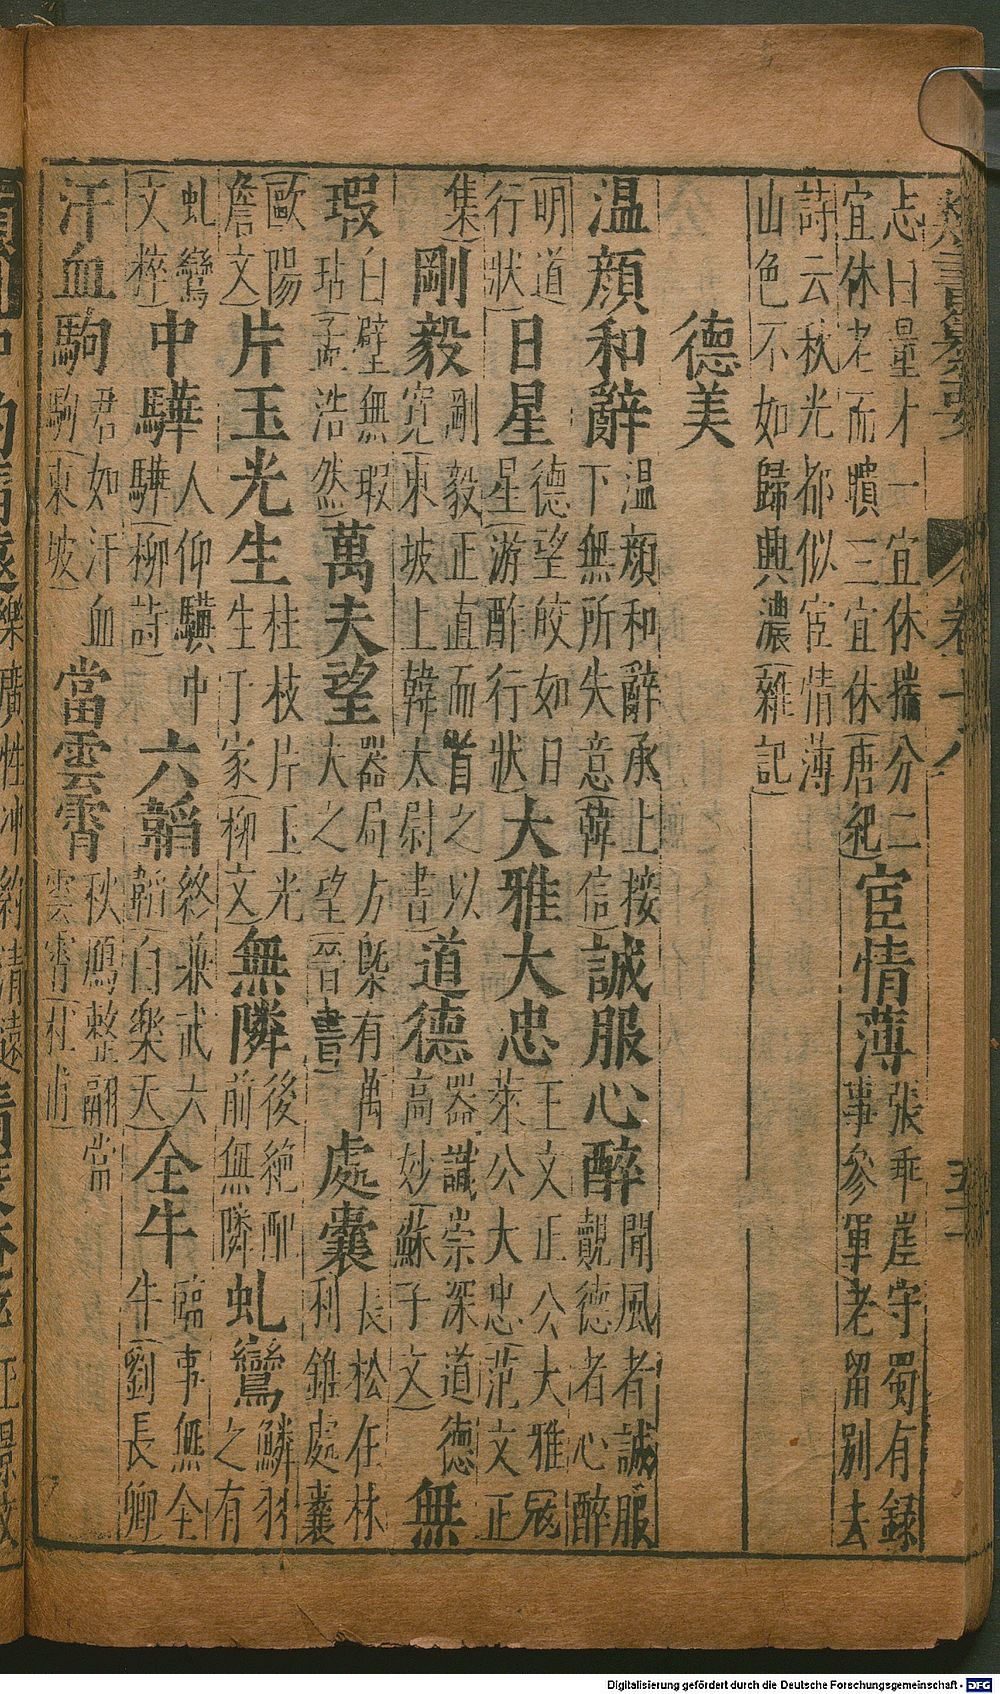 曰量才一宜休揣分二宜休老而聵三宜休(唐紀)宦情薄張乖崖守蜀有録事參軍老留別去
詩云秋光都似宦情薄山色不如歸興濃(雜記)
德美
温顔和辭温顔和辭承上接下無所失意(韓信)誠服心醉聞風者誠服覿德者心醉
(明道行狀)日星德望皎如日星(游酢行狀)大雅大忠王文正公大雅寇萊公大忠(范文正
集)剛毅剛毅正直而首之以寛(東坡上韓太尉書)道德器識崇深道德高妙(蘇子文)無
瑕白璧無瑕玷(孟浩然)萬夫望器局方槩有萬夫之望(晉書)處囊長松在林利錐處囊
(歐陽詹文)片玉光生桂枝片玉光生于家(柳文)無隣後絶配前無隣虬鸞鱗羽之有
虬鸞(文粹)中驊人仰驥中驊(柳詩)六韜終兼武六韜(白樂天)全牛臨事無全牛(劉長卿)
汗血駒君如汗血駒(東坡)當雲霄秋鴈整翮當雲霄(杜甫)
樂廣性冲約清遠
Digitalisierung gefördert durch die Deutsche Forschungsgemeinschaft - DFG